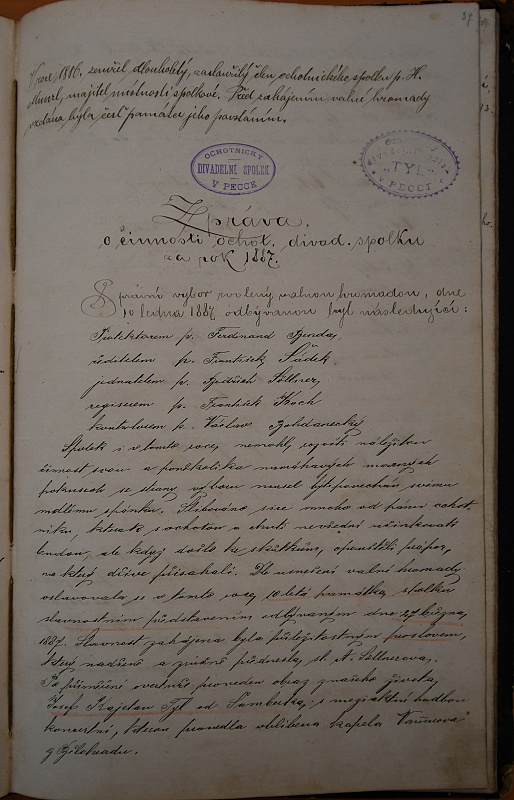 37
V roce 1886. zemřel dlouholetý, zasloužilý člen ochotnického spolku p. H.
majitel místnosti spolkové. Před zahájením valné hromady
vzdána byla čest památce jeho povstáním.
OCHOTNICKÝ
DIVADELNÍ SPOLEK
V PECCE
"TYL"
V PECCE
Zpráva
o činnosti ochot. divad. spolku
za rok 1887.
Správní výbor zvolený valnou hromadou, dne
10 ledna 1887 odbývanou byl následující:
Protektorem p. Ferdinand Benda,
ředitelem p. František Sádek
jednatelem p. Bedřich Söllner,
regiserem p. František Koch
kontrolorem p. Václav Bohdanecký
Spolek i v tomto roce, nemohl, rozviti náležitou
činnost svou a po několika namáhavých marných
pokusech se strany výboru musel být ponechán svému
mdlému spánku. Slibováno sice mnoho od pánů ochot-
níků, kterak s ochotou a chutí nevšední účinkovati
budou, ale když došlo ku skutkům, opustili prápor,
na který dříve přísahali. Dle usnešení valné hromady
oslavovala se v tomto roce, 10 letá památka, spolku
slavnostním představením odbývaným dne 27 března,
1887. Slavnost zahájena byla příležitostným proslovem,
který nadšeně a zdařile přednesla, sl. A. Söllnerova.
Po přiměřené overtuře, proveden obraz ze života,
Josef Kajetan Tyl od Šamberka, s meziaktní hudbou
koncertní, kterou provedla oblíbena kapela
z Bělohradu.